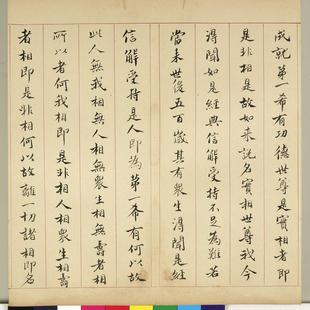 成就第一希有功德世尊是實相者即
是非相是故如來說名實相世尊我今
得聞如是經典信解受持不足為難若
當來世後五百歲其有衆生得聞是經
信解受持是人即為第一希有何以故
此人無我相無人相無衆生相無壽者相
所以者何我相即是非相人相衆生相壽
者相即是非相何以故離一切諸相即名